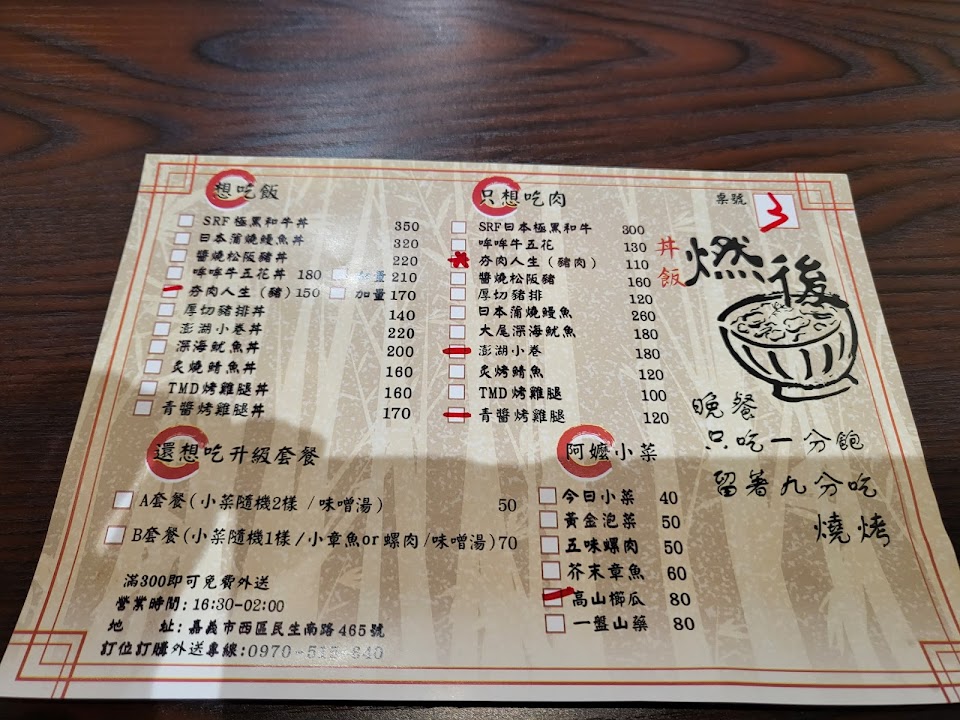 想吃飯
SRF極黑和牛丼 350
日本蒲燒鰻魚丼 320
醬燒松阪豬丼 220
哞哞牛五花丼 180 加量 210
夯肉人生（豬）150 加量 170
厚切豬排丼 140
澎湖小卷丼 220
深海魷魚丼 200
炙燒鯖魚丼 160
TMD烤雞腿丼 160
青醬烤雞腿丼 170
只想吃肉
SRF日本極黑和牛 300
哞哞牛五花 130
夯肉人生（豬肉） 110
醬燒松阪豬 160
厚切豬排 120
日本蒲燒鰻魚 260
大尾深海魷魚 180
澎湖小卷 180
炙烤鯖魚 120
TMD烤雞腿 100
青醬烤雞腿 120
桌號 3
丼飯
燃後
晚餐
只吃一分飽
留著九分吃
燒烤
還想吃升級套餐
A套餐(小菜隨機2樣 /味噌湯) 50
B套餐(小菜隨機1樣/小章魚or螺肉/味噌湯)70
阿嬤小菜
今日小菜 40
黃金泡菜 50
五味螺肉 50
芥末章魚 60
高山櫛瓜 80
一盤山藥 80
滿300即可免費外送
營業時間: 16:30-02:00
地 址: 嘉義市西區民生南路465號
訂位訂購外送專線:0970-515-840